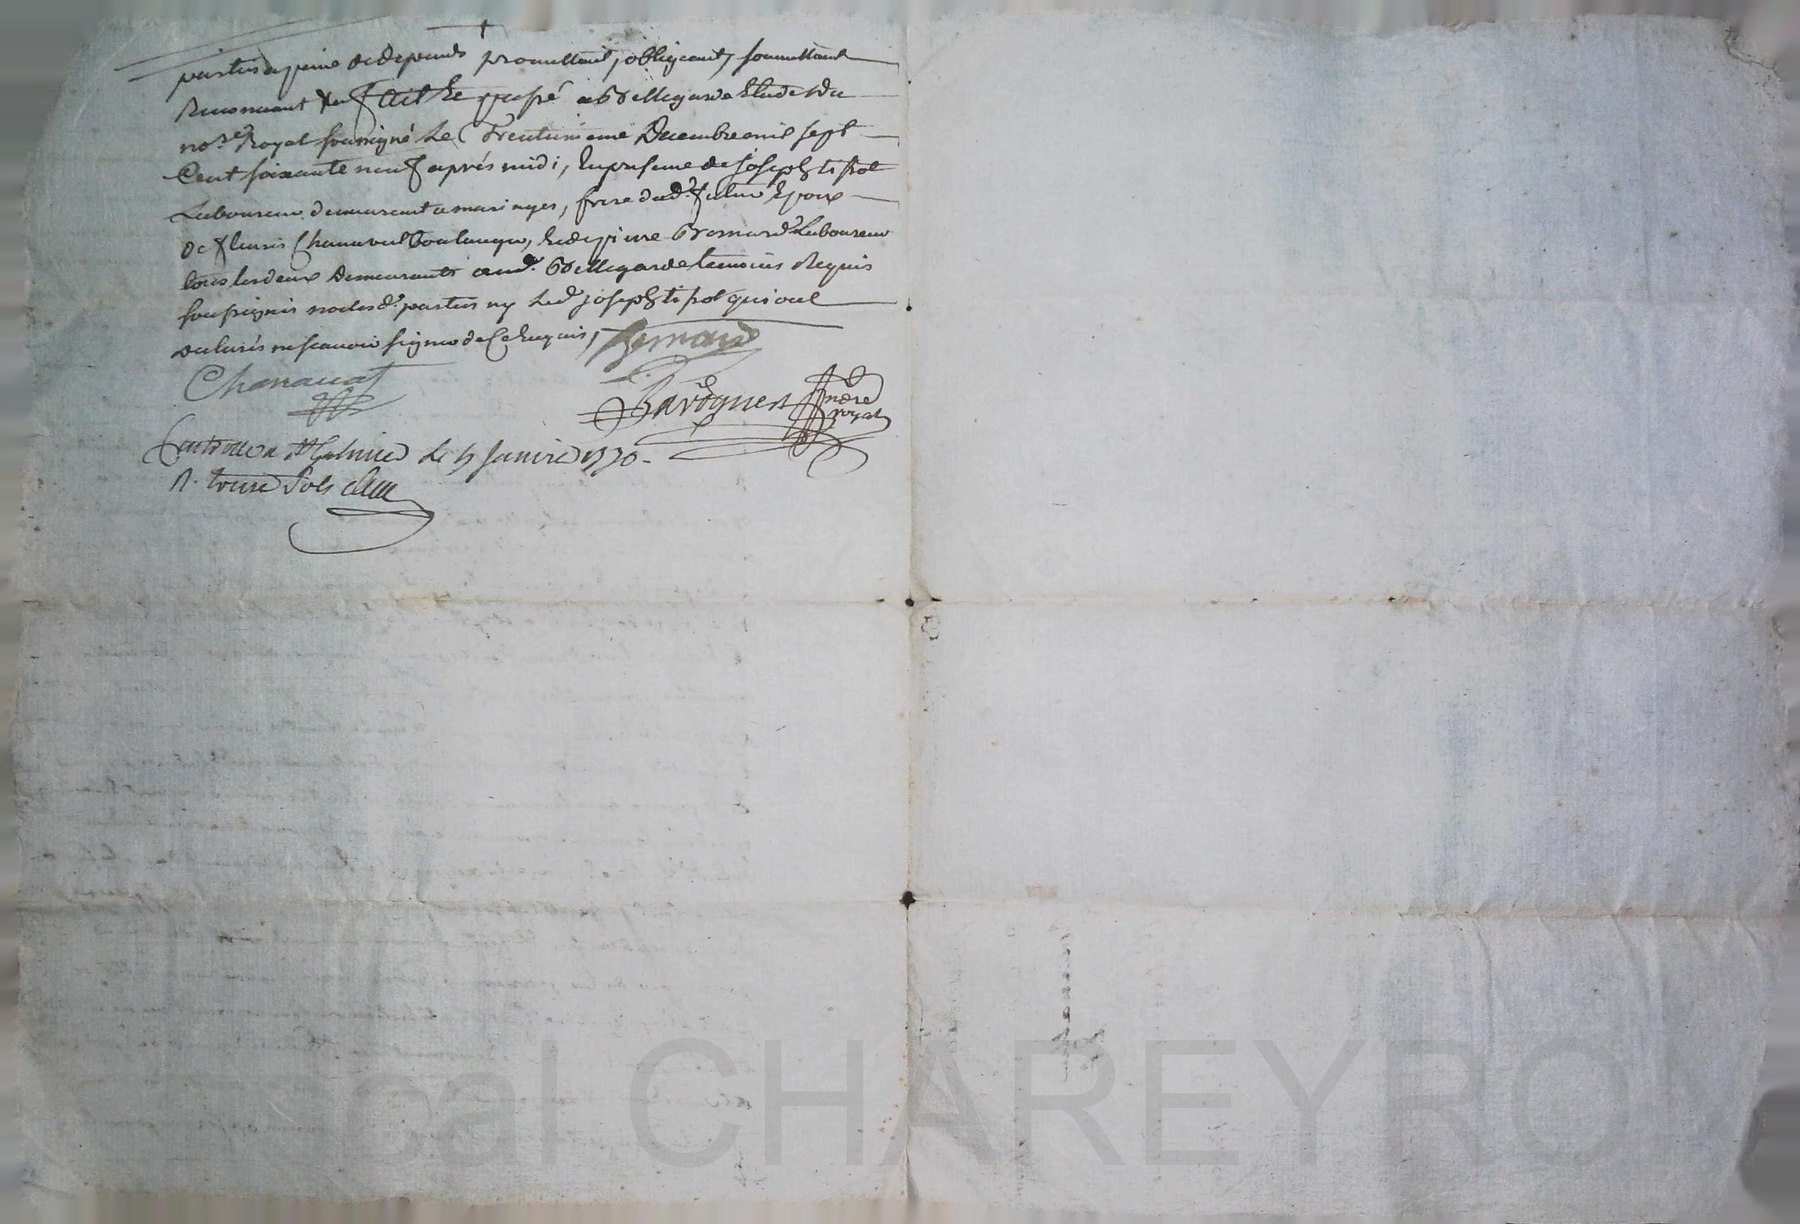 parties a peine de depends promettant, obligeant, soumettant
Renonceant &c fait & passé a Bellegarde Etude du
no.re Royal soussigné Le Trentunieme Decembre mil sept
Cent soixante neuf après midi, En presence de joseph tissot
Laboureur demeurant a maringes, frere dud. futur Epoux
de fleuris Chanavat Boulanger, & de pierre Bernard Laboureur
tous les deux Demeurants aud. Bellegarde temoins Requis
soussignés no les d. parties ny Led joseph tissot qui ont
declarés ne scavoir signer de Ce Enquis,
Bernard
Chanavat
no.re royal
Controllé a St Galmier Le 4 Janvier 1770
R. treize sols
cal CHAREYRO